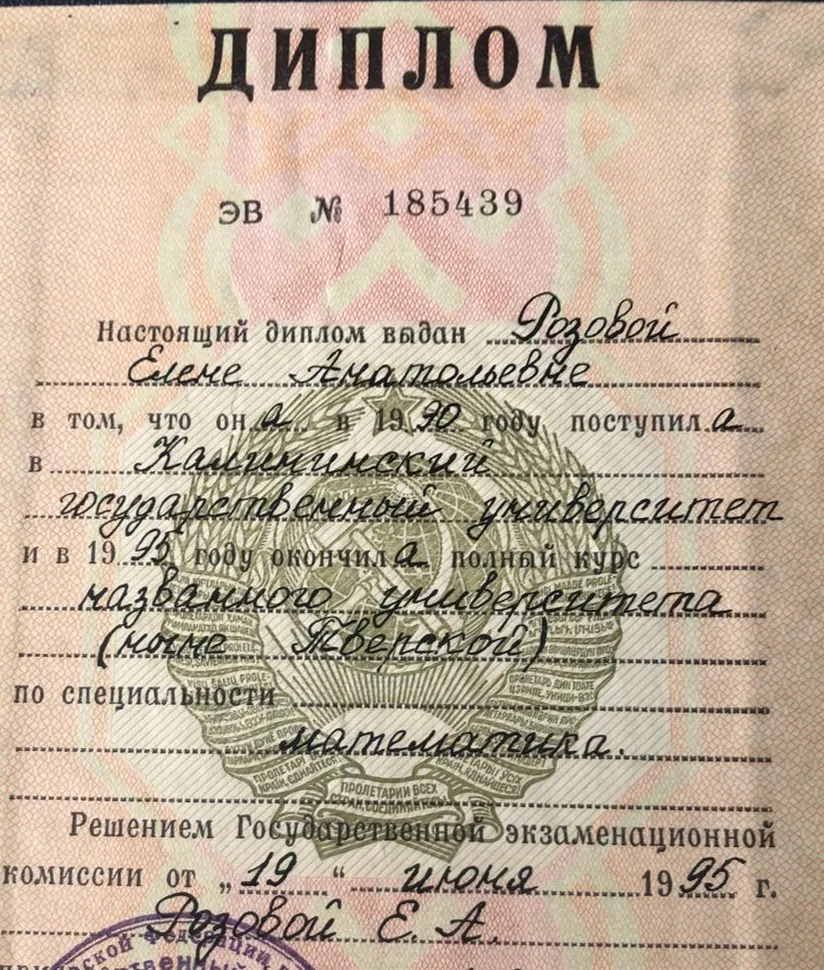 ДИПЛОМ
ЭВ № 185439
Настоящий диплом выдан Розовой
Елене Анатольевне
в том, что она в 1990 году поступила
в Калининский
государственный университет
и в 1995 году окончила полный курс
названного университета
(ныне Тверской)
по специальности
математика.
ПРОЛЕТАРИИ ВСЕХ
СТРАН, СОЕДИНЯЙТЕСЬ!
Решением Государственной экзаменационной
комиссии от „19“ июня 1995 г.
Розовой Е. А.
Федерации